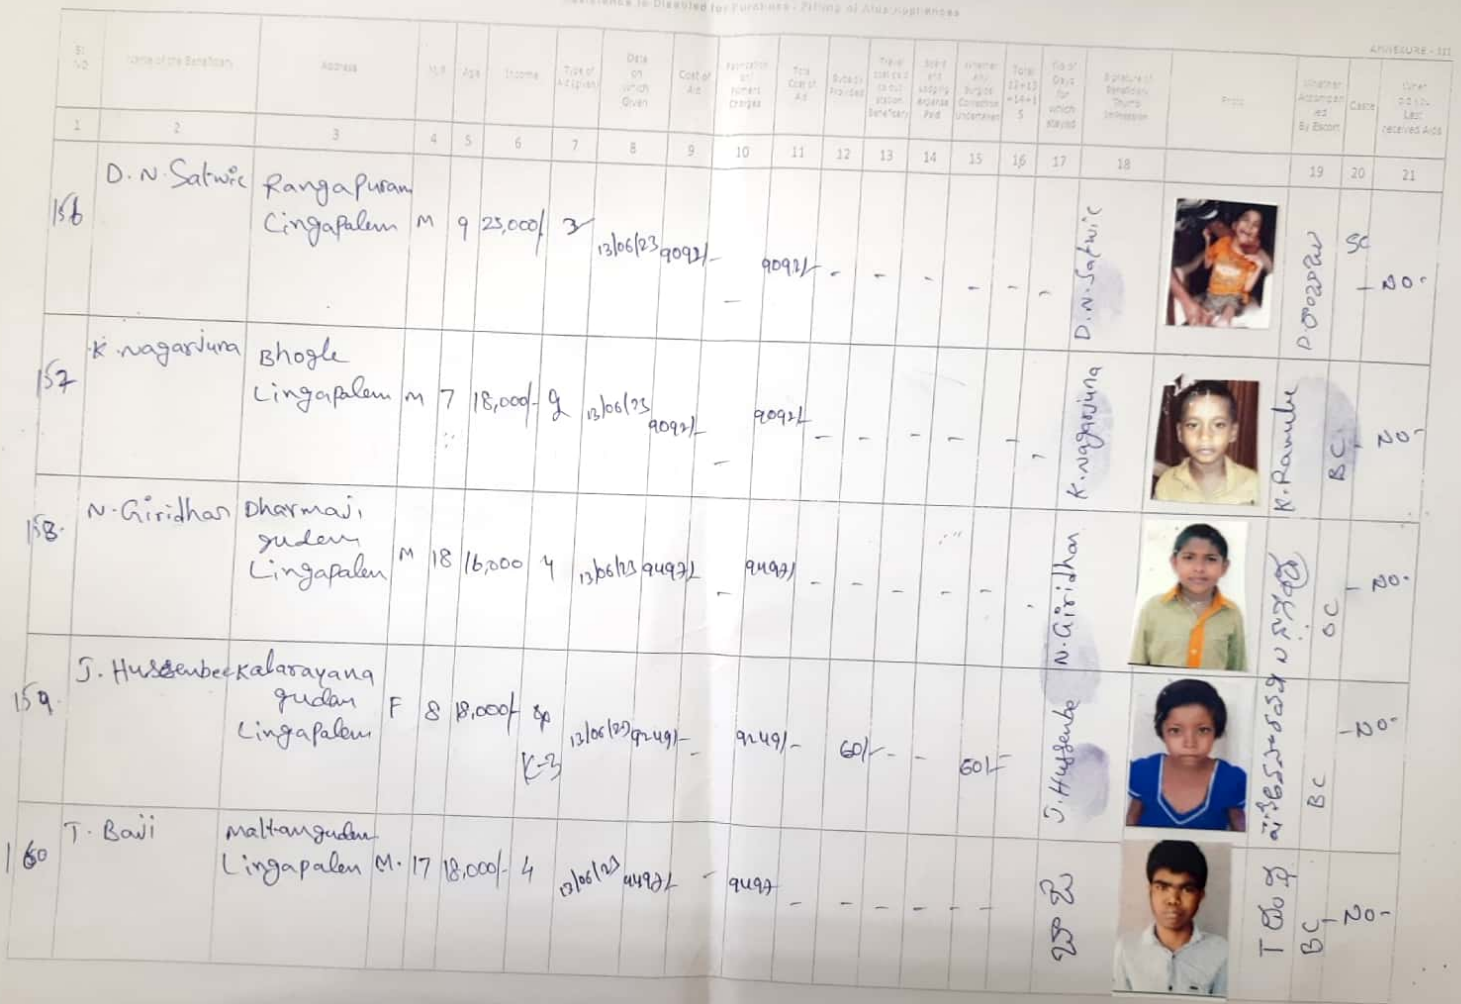 Assistance to Disabled for Purchase - Fitting of Aids/Appliances
ANNEXURE - III
Sl. No Name of the Beneficiary Address M/F Age Income Type of Aid (given) Date on Which Given Cost of Aid Total Cost of Aid Subsidy Provided Board and Lodging Expense Paid Total 12+13+14+15 No of Days for which stayed Signature of Beneficiary Thumb Impression Photo Whether Accompanied By Escort Caste Last received Aids
1 2 3 4 5 6 7 8 9 10 11 12 13 14 15 16 17 18 19 20 21
156 D. N. Satwic Rangapuram Lingapalem M 9 25,000/- 3 13/06/23 9092/- - 9092/- - - - - - - D. N. Satwic SC - NO -
157 K. Nagarjuna Bhogle Lingapalem M 7 18,000/- 13/06/23 9092/- - 9092/- - - - - - - K. Nagarjuna K. Rambe BC - NO -
158. N. Giridhar Dharmaji gudem Lingapalem M 18 16,000 4 13/06/23 9497/- - 9497/- - - - - - - N. Giridhar OC - NO -
159. J. Hussenbee Kalarayana gudem Lingapalem F 8 18,000/- K-3 13/06/23 9249/- - 9249/- - 60/- - - 60/- J. Hussenbe BC - NO -
160 T. Baji Lingapalem M. 17 18,000/- 4 13/06/23 9497/- - 9497 - - - - - - బాజి BC - NO -